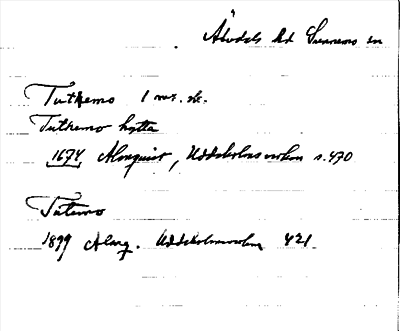 Älvdals hd Sunnemo sn
Tutkemo 1 mt. sk.
Tutkemo hytta
1674 Almquist, Uddeholmsverken s. 470
Tutemo
1899 Almq. Uddeholmsverken 421